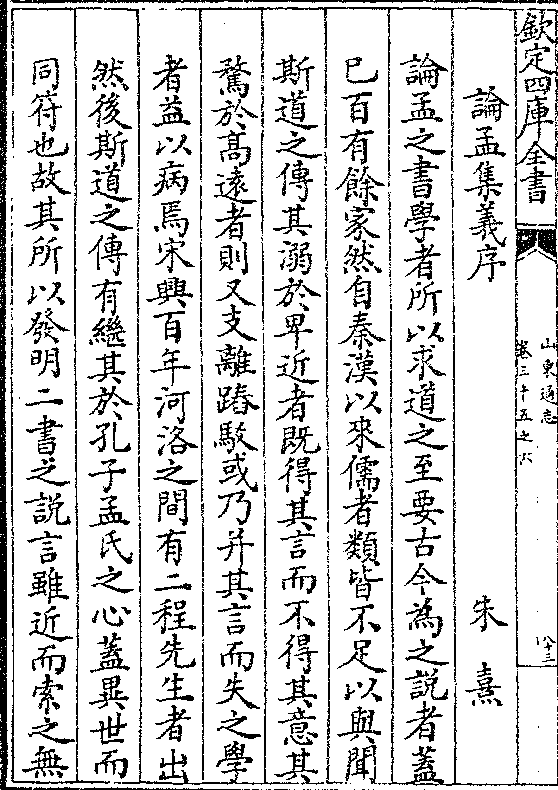 欽定四庫全書
山東通志
卷三十五之六
八十三
論孟集義序 朱熹
論孟之書學者所以求道之至要古今為之説者蓋
已百有餘家然自秦漢以來儒者類皆不足以與聞
斯道之傳其溺於卑近者既得其言而不得其意其
騖於髙遠者則又支離踳駮或乃并其言而失之學
者益以病焉宋興百年河洛之間有二程先生者出
然後斯道之傳有繼其於孔子孟氏之心蓋異世而
同符也故其所以發明二書之説言雖近而索之無